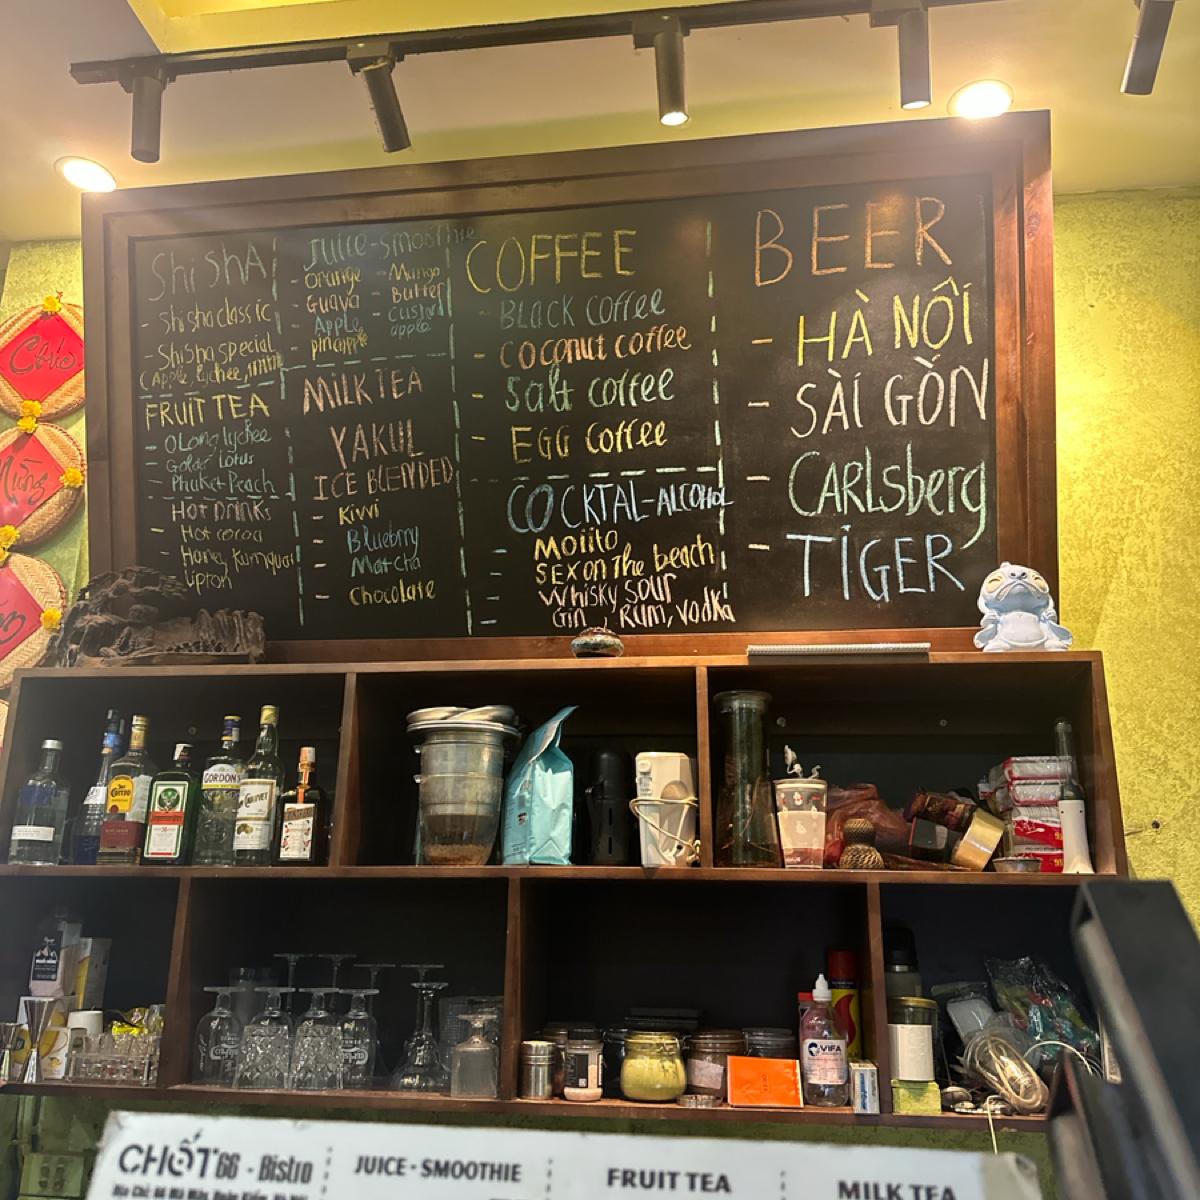 Shisha
- Shisha classic
- Shisha special
(Apple, Lychee, mint)
FRUIT TEA
- OLong lychee
- Golden Lotus
- Phuket Peach
HOT DRINKS
- Hot cocoa
- Honey kumquat
Lipton
Juice-smoothie
- Orange
- Guava
- Apple
- pineapple
- Mango
- Butter
- Custard
apple
MILK TEA
YAKUL
ICE BLENDED
- Kiwi
- Bluebrry
- Matcha
- Chocolate
COFFEE
- BLACK coffee
- Coconut coffee
- Salt coffee
- EGG Coffee
COCKTAL-ALCOHOL
- Moiito
- SEX on The beach
- Whisky sour
- Gin, Rum, vodka
BEER
- HÀ NỘI
- SÀI GÒN
- CARlsberg
- TIGER
Chúc
Mừng
GORDON'S
VIFA
CHỐT 66 - Bistro
Địa Chỉ: 66 Mã Mây, Hoàn Kiếm, Hà Nội
JUICE - SMOOTHIE
FRUIT TEA
MILK TEA